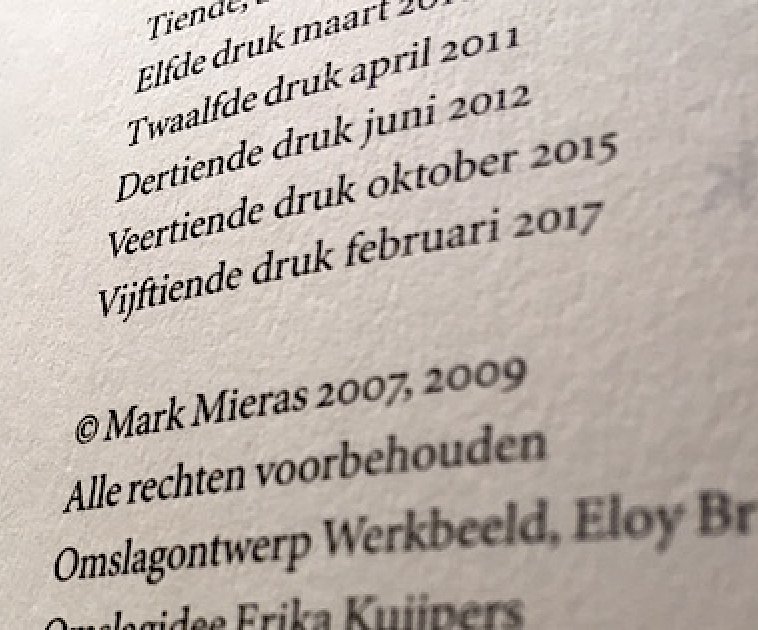 Tiende,
Elfde druk maart
Twaalfde druk april 2011
Dertiende druk juni 2012
Veertiende druk oktober 2015
Vijftiende druk februari 2017
© Mark Mieras 2007, 2009
Alle rechten voorbehouden
Omslagontwerp Werkbeeld, Eloy Br
Omslagidee Erika Kuijpers